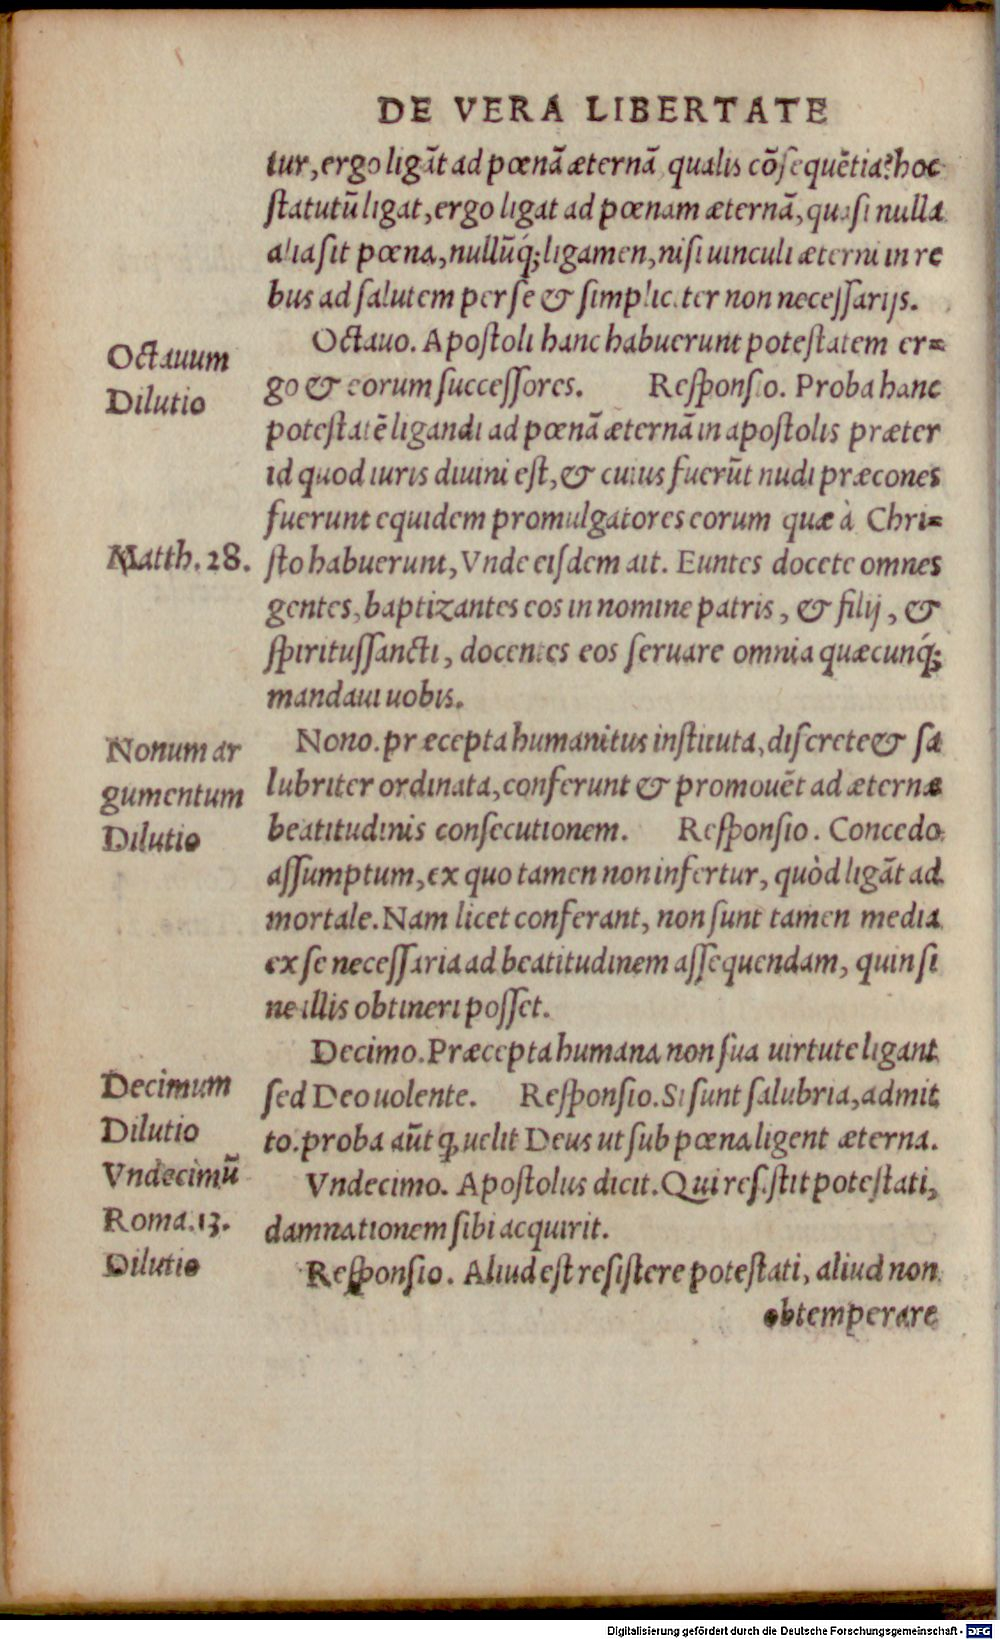 DE VERA LIBERTATE
tur, ergo ligāt ad pœnā æternā, qualis cōsequētia? hoc
statutū ligat, ergo ligat ad pœnam æternā, quasi nulla
alia sit pœna, nullūq́; ligamen, nisi uinculi æterni in re
bus ad salutem per se & simpliciter non necessarijs.
Octauo. Apostoli hanc habuerunt potestatem er=
go & eorum successores. Responsio. Proba hanc
potestatē ligandi ad pœnā æternā in apostolis præter
id quod iuris diuini est, & cuius fuerūt nudi præcones
fuerunt equidem promulgatores eorum quæ à Chri=
sto habuerunt, Vnde eisdem ait. Euntes docete omnes
gentes, baptizantes eos in nomine patris, & filij, &
spiritussancti, docentes eos seruare omnia quæcunq́;
mandaui uobis.
Nono. præcepta humanitus instituta, discrete & sa
lubriter ordinata, conferunt & promouēt ad æternæ
beatitudinis consecutionem. Responsio. Concedo
assumptum, ex quo tamen non infertur, quòd ligāt ad
mortale. Nam licet conferant, non sunt tamen media
ex se necessaria ad beatitudinem assequendam, quin si
ne illis obtineri posset.
Decimo. Præcepta humana non sua uirtute ligant
sed Deo uolente. Responsio. Si sunt salubria, admit
to. proba aūt ꝙ uelit Deus ut sub pœna ligent æterna.
Vndecimo. Apostolus dicit. Qui resistit potestati,
damnationem sibi acquirit.
Responsio. Aliud est resistere potestati, aliud non
obtemperare
Octauum
Dilutio
Matth. 28.
Nonum ar
gumentum
Dilutio
Decimum
Dilutio
Vndecimū
Roma. 13.
Dilutio
Digitalisierung gefördert durch die Deutsche Forschungsgemeinschaft - DFG